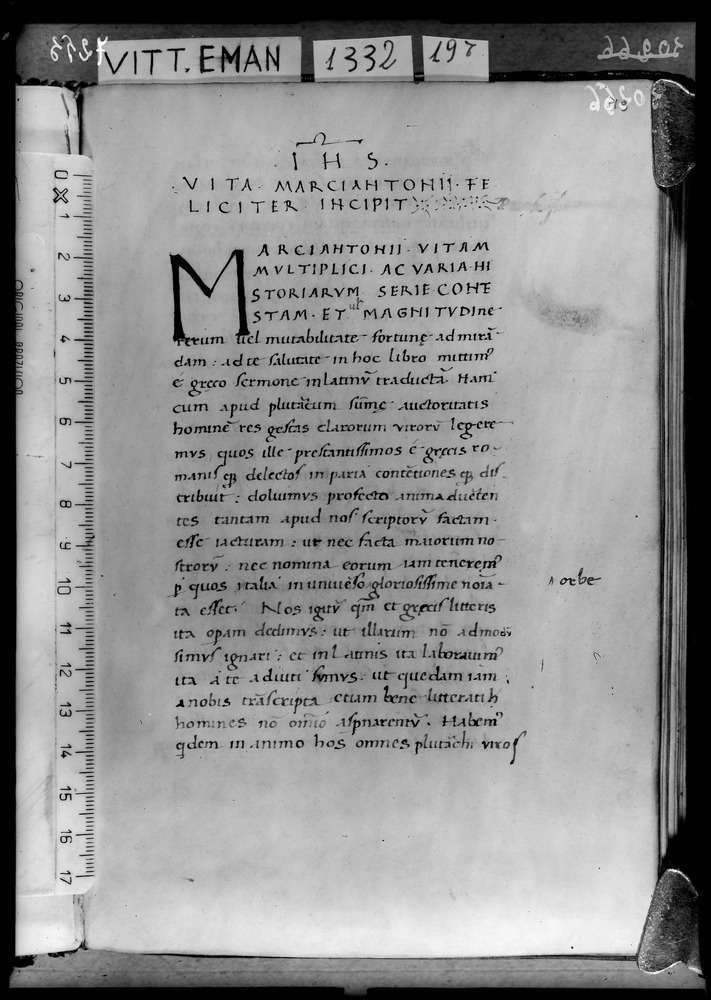 VITT. EMAN 1332 197
I H S.
VITA. MARCIANTONII. FE
LICITER INCIPIT
MARCIANTONII. VITAM
MVLTIPLICI. AC VARIA HI
STORIARVM SERIE CONTE
STAM. ET ut MAGNITVDINE
rerum uel mutabilitate fortunę admirā
dam: ad te salutate in hoc libro mittim⁹
é greco sermone in latinū traductā Nam
cum apud plutarcum sūmę auctoritatis
hominē res gestas clarorum virorū legere
mvs quos ille prestantissimos é grecis ro
manisqꝫ delectos in paria contētiones qꝫ dis
tribuit: doluimvs profecto animaduerten
tes tantam apud nos scriptorū factam
esse iacturam: ut nec facta maiorum no
strorū: nec nomina eorum iam tenerem⁹
p quos italia in uniuerso gloriosissime noīa
ʌ orbe
ta esset. Nos igitū qm̄ et grecis litteris
ita opam dedimvs: ut illarum nō admodū
simvs ignari: et in Latinis ita laborauim⁹
ita á te adiuti sumvs. ut quedam iam
a nobis trāscripta etiam bene litteratis
homines nō omīo aspnarentū. Habem⁹
qdem in animo hos omnes plutarchi viros
0 1 2 3 4 5 6 7 8 9 10 11 12 13 14 15 16 17